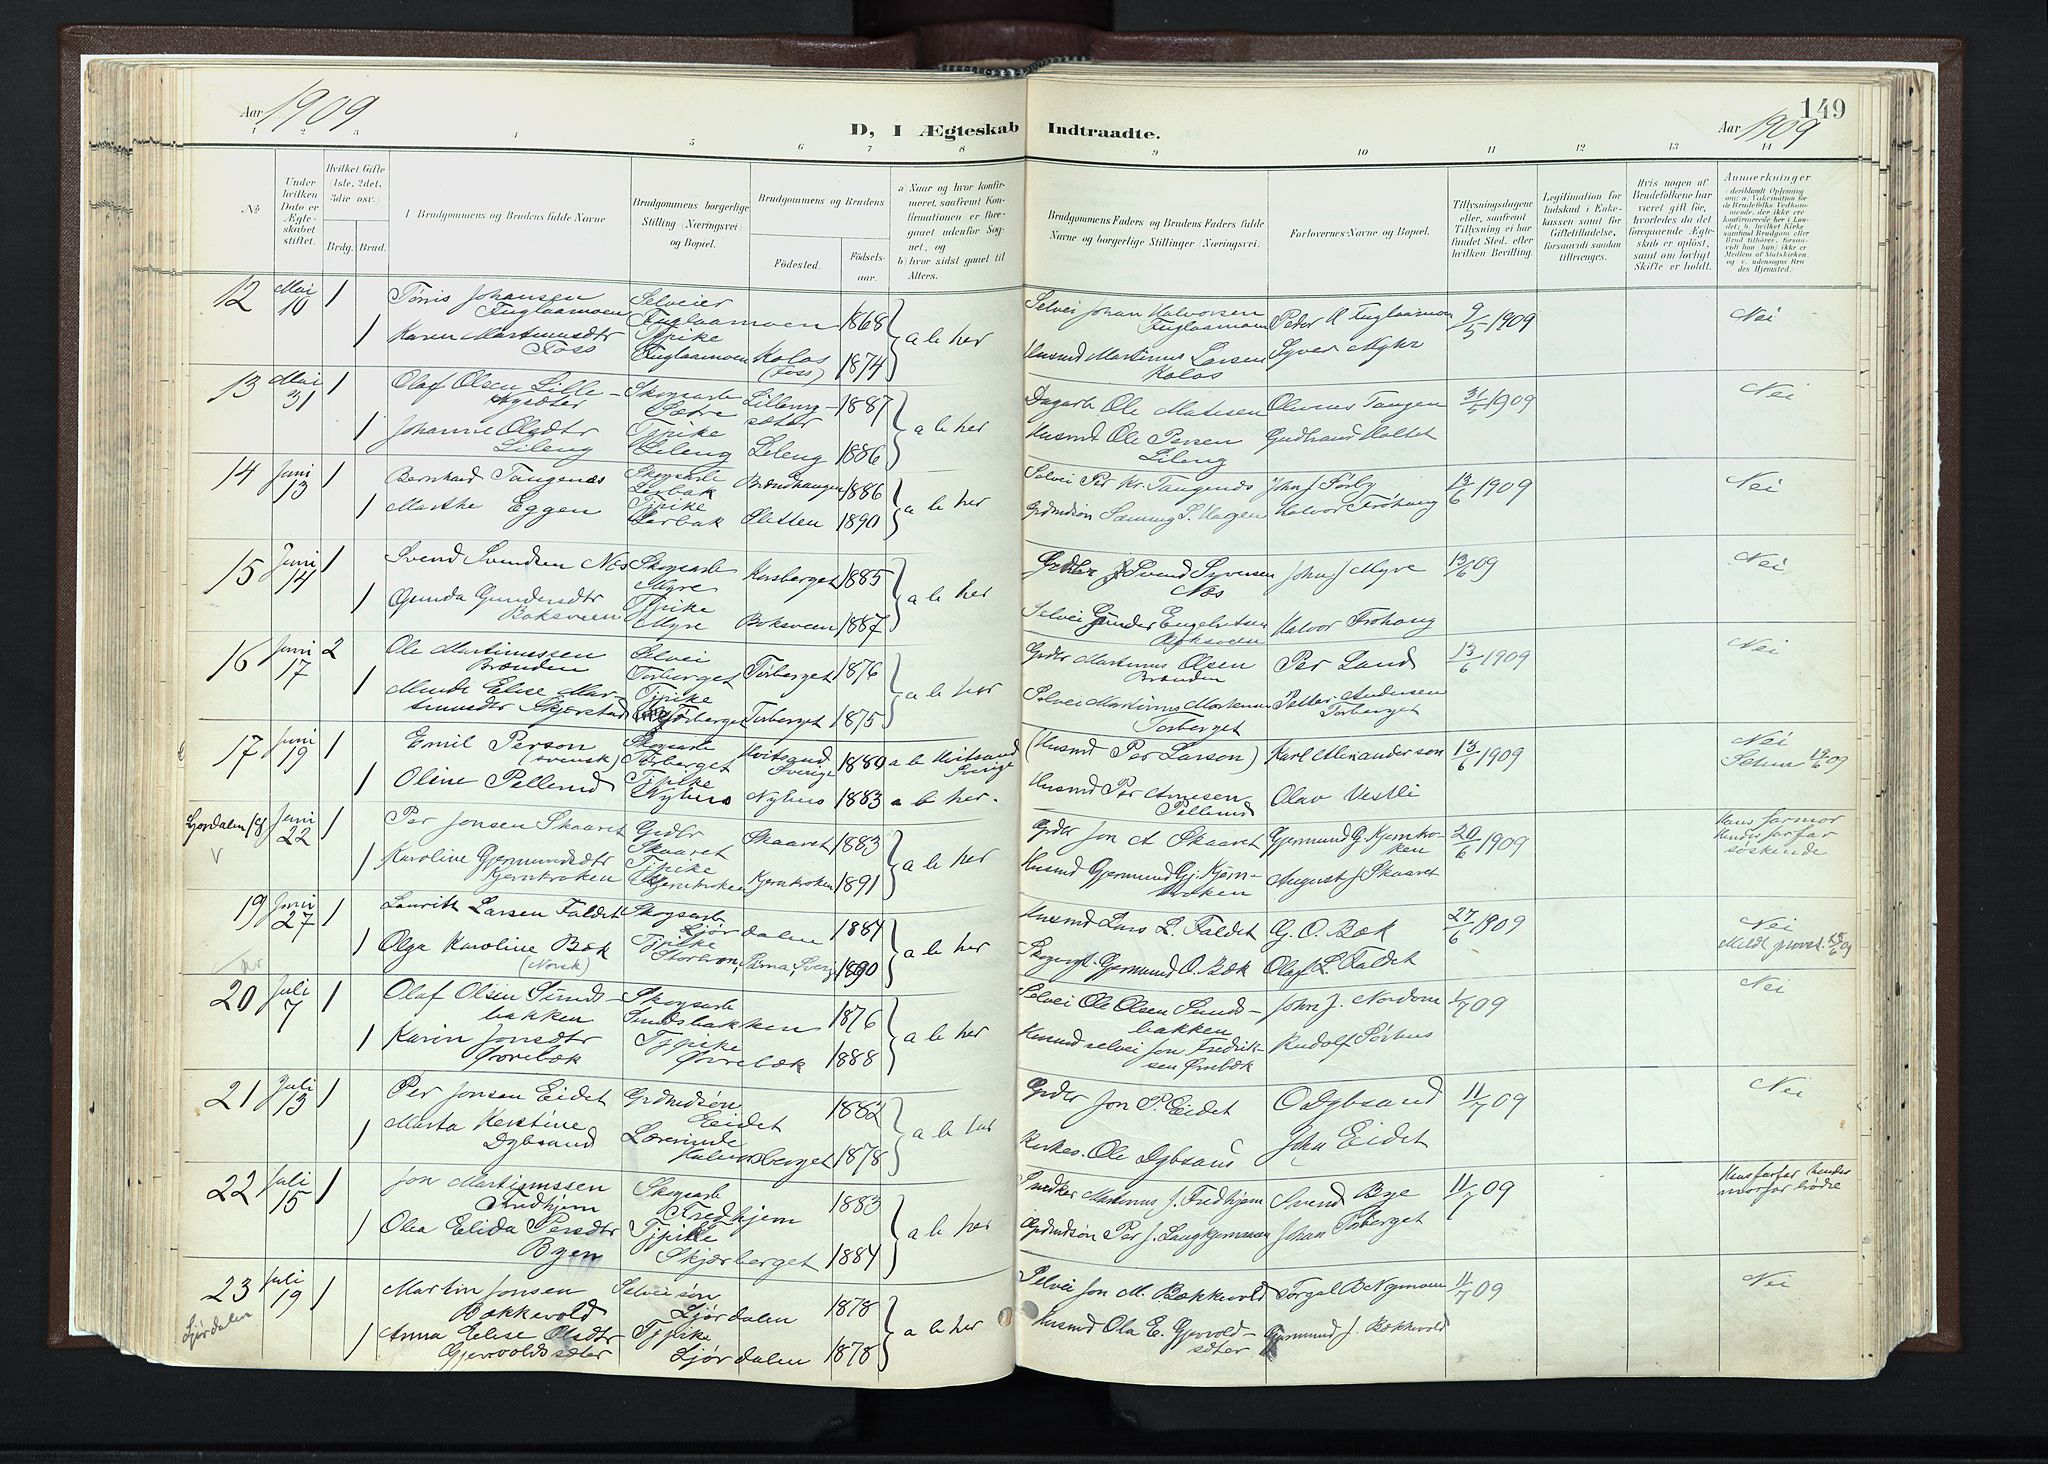 149
Aar 1909
D, I Ægteskab Indtraadte.
Aar 1909
1 2 3 4 5 6 7 8 9 10 11 12 13 14
№
Under hvilken Dato er Ægteskabet stiftet.
Hvilket Gifte (1ste, 2det, 3die osv.)
Brdg. Brud.
I Brudgommens og Brudens fulde Navne
Brudgommens borgerlige Stilling (Næringsvei) og Bopæl.
Brudgommens og Brudens
Fødested.
Fødselsaar.
a) Naar og hvor konfirmeret, saafremt Konfirmationen er foregaaet udenfor Sognet, og
b) hvor sidst gaaet til Alters.
Brudgommens Faders og Brudens Faders fulde Navne og borgerlige Stillinger (Næringsvei.
Forlovernes Navne og Bopæl.
Tillysningsdagene eller, saafremt Tillysning ei har fundet Sted, efter hvilken Bevilling.
Legitimation for Indskud i Enkekassen samt for Giftetilladelse, forsaavidt saadan tiltrænges.
Hvis nogen af Brudefolkene har været gift før, hvorledes da det foregaaende Ægteskab er opløst, samt om lovligt Skifte er holdt.
Anmerkninger
12 Mai 10 1 Tørris Johansen Fuglaamoen Selveier Fuglaamoen 1868 a b her Selvei Johan Halvorsen Fuglaamoen Peder H Fuglaamoen 9/5 1909 Nei
1 Karen Martinusdtr Foss Tjpike Fuglaamoen Kolos (Foss) 1874 Husmd Martinus Larsen Kolos Syver Myhr
13 Mai 31 1 Olaf Olsen Lille- Skogsarb Sætre Lilleng- sæter 1887 a b her Dagarb. Ole Olivens Tangen 31/5 1909 Nei
1 Johanne Olsdtr Lileng Tjpike Lileng Lileng 1886 Husmd Ole Persen Lileng Holtet
14 Juni 13 1 Bernhard Tangenæs Skogsarb Lerbak Brændhaugen 1886 a b her Selvei Per Kr. Tangenæs John J Sørby 13/6 1909 Nei
1 Marthe Eggen Tjpike Lerbak Sletten 1890 Grdmdsøn S. Hagen Halvor Frøhaug
15 Juni 14 1 Svend Svendsen Næs Skogsarb Myre Korsberget 1885 a b her Svend Syversen Næs John J Myre 13/6 09 Nei
1 Gunda Gundersdtr Boksveen Tjpike Myre Boksveen 1887 Selvei Gunder Engebretsen Boksveen Halvor Frøhaug
16 Juni 17 2 Ole Martinussen Brænden Selvei Torberget Torberget 1876 a b her Grdbr Martinus Olsen Brænden Per Land 13/6 1909 Nei
1 Elise Martinusdtr Skjærstad Tjpike Torberget Torberget 1875 Selvei Martinus Torberget Petter Andersen Torberget
17 Juni 19 1 Emil Person (svensk) Skogsarb Torberget Hvitsand Sverige 1880 a b Hvitsand Sverige (Husmd Per Larson) Karl Alexanderson 13/6 1909 Nei
1 Oline Pellerud Tjpike Nyhus Nyhus 1883 a b her. Husmd Per Arnesen Pellerud Olav Vestli
Ljørdalen 18 Juni 22 1 Per Jonsen Skaaret Grdbr Skaaret Skaaret 1883 a b her Grdbr Jon A Skaaret Gjermund G. Kjernkroken 20/6 1909 Hans farmor Hendes farfar søskende
1 Karoline Gjermundsdtr Kjernkroken Tjpike Kjernkroken Kjernkroken 1891 Husmd Gjermund Gj. Kjernkroken August J Skaaret
19 Juni 27 1 Laurith Larsen Faldet Skogsarb Ljørdalen 1884 a b her Husmd Lars L. Faldet G. O. Bæk 27/6 1909 Nei
1 Olga Karoline Bæk (Norsk) Tjpike Særna, Sverig 1890 Skogvgt. Gjermund O. Bæk Olaf L. Faldet
20 Juli 7 1 Olaf Olsen Sundsbakken Skogsarb Sundsbakken 1876 a b her Selvei Ole Olsen Sundsbakken John J. Nordom 4/7 09 Nei
1 Karin Jonsdtr Øvrebæk Tjpike Øvrebæk 1888 Husmd selvei Jon Fredriksen Øvrebæk Rudolf Sørhus
21 Juli 13 1 Per Jonsen Eidet Grdmdsøn Eidet 1882 a b her Grdbr Jon P. Eidet O Dybsand 11/7 09 Nei
1 Marta Kerstine Dybsand Lærerinde Halvorsberget 1878 Kirkes. Ole Dybsand John Eidet
22 Juli 15 1 Jon Martinussen Fredhjem Skogsarb Fredhjem 1883 a b her Snedker Martinus J. Fredhjem Svend Bye 11/7 09 Hans farfar hendes morfar brødre
1 Olea Elida Persdtr Byen Tjpike Skjærberget 1884 Grdmdsøn Per J. Johan Torberget
23 Juli 19 1 Martin Jonsen Bækkevold Selveisøn Ljørdalen 1878 a b her Selvei Jon M. Bækkevold Torgal B Nymoen 11/7 09 Nei
Ljørdalen
1 Anna Elise Olsdtr Gjervoldsæter Tjpike Ljørdalen 1878 Husmd Ola E. Gjervoldsæter Gjermund J. Bækkevold